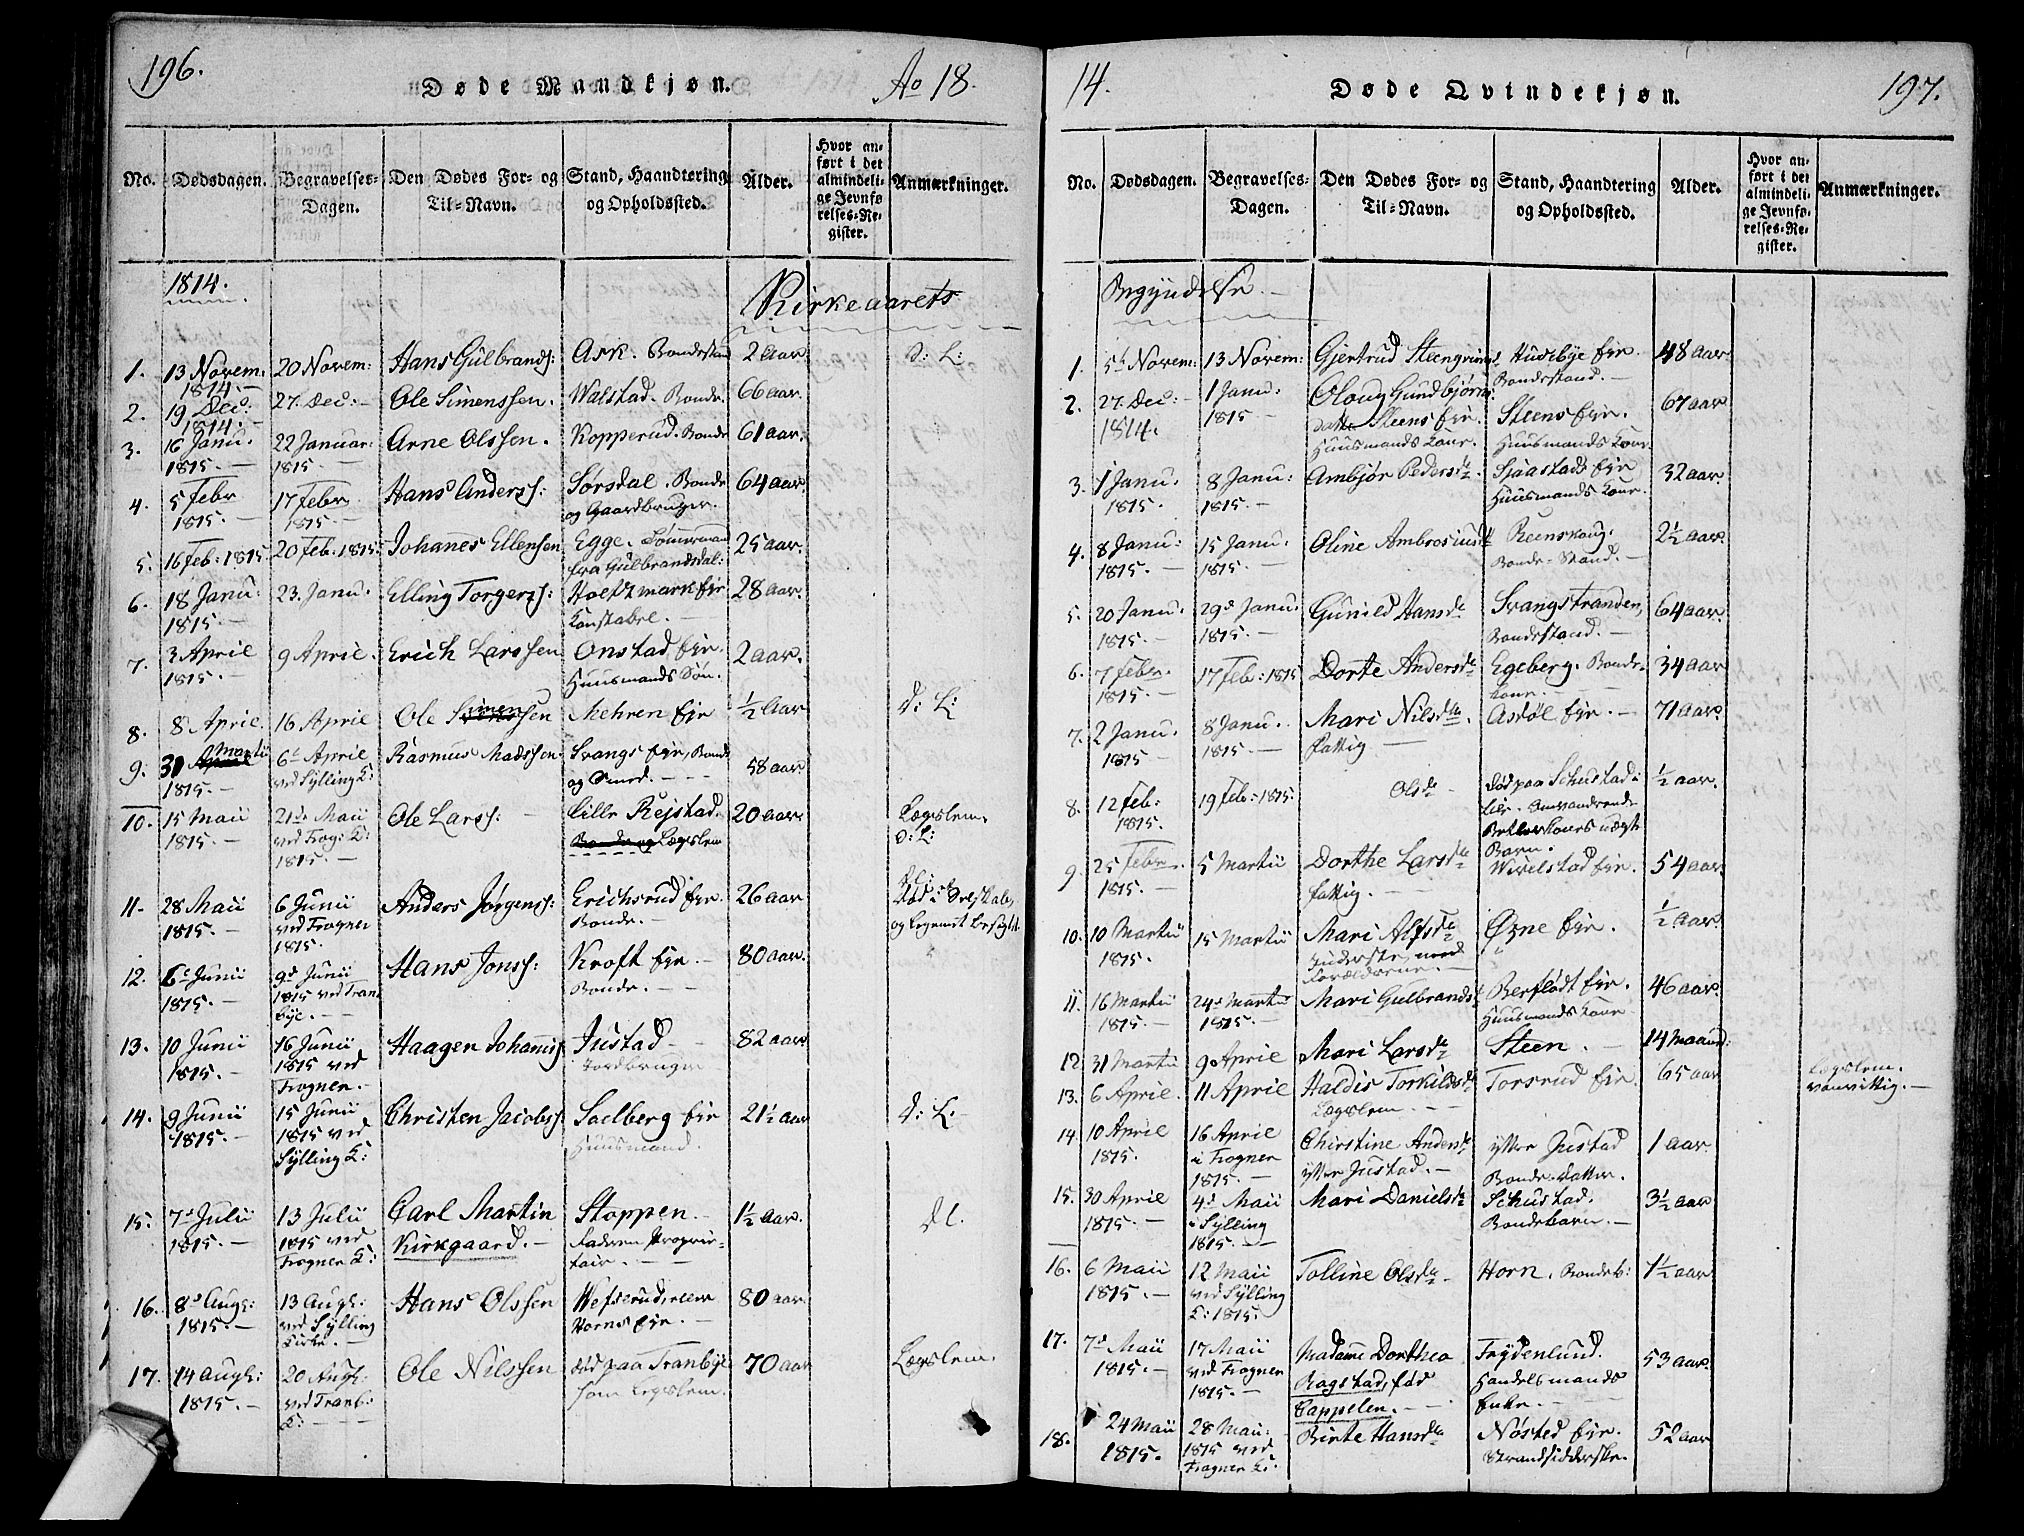 196.
Døde Mandkjøn.
Ao 18
No. Dødsdagen. Begravelses-Dagen. Den Dødes For- og Til-Navn. Stand, Haandtering og Opholdssted. Alder. Hvor anført i det almindelige Jevnførelses-Register. Anmærkninger.
1814.
Kirkeaarets
1. 13 Novem: 20 Novem: Hans Gulbrands: Ask. Bondestand 2 aar. d: L:
1814.
2. 19 Dec: 27. Dec: Ole Simenssen. Walstad. Bonde. 66 aar.
1814.
3. 16 Janu. 22 Januar: Arne Olssen. Kopperud. Bonde 61 aar.
1815. 1815.
4. 5 Febr 17 Febr Hans Anderss: Sørsdal. Bonde 64 aar.
1815. 1815. og Gaardbruger.
5. 16 Feb: 1815 20 Feb. 1815 Johanes Ellensen Egge. Tømermand 25 aar.
fra Gulbrandsdal:
6. 18 Janu: 23. Janu. Elling Torgerss: Holtzmark Eie 28 aar.
1815. Konstabel.
7. 3 April 9 April. Erich Larssen Onstad Eie. 2 aar.
1815. Huusmands Søn.
8. 8 April. 16 April Ole Simensen Mehren Eie ½ Aar d: L:
9. 31 Martii 6te April Rasmus Madssen Svangs Eie, Bonde 58 aar.
1815. ved Sylling K: og Smed.
10. 15 Maii 21de Maii Ole Larss: Lille Rejstad. 20 aar. Lægslem.
1815. ved Frog: K: Bonde og Lægslem d: L:
1815.
11. 28 Maii 6 Junii Anders Jørgenss: Erichsrud Eie. 26 aar dl:
1815. ved Frogner Bonde. Død i
1815. og Legemet besigtet.
12. 6te Junii 9de Junii Hans Jonss: Kroft Eie. 80 aar.
1815. 1815 ved Tran Bonde.
bye.
13. 10 Junii 16 Junii Haagen Johaness Justad 82 aar
1815. 1815 ved Jordbruger
Frogner.
14. 9 Junii 15 Junii Christen Jacobss: Soelberg Eie 21½ aar d: L:
1815. 1815 ved Huusmand.
Sylling K:
15. 7de Julii 13 Julii Carl Martin Stoppen. 1½ aar. dl.
1815. 1815 ved Kirkgaard. Faderen Proprie-
Frogner K: tair.
16. 8de Augs: 13 Augs: Hans Olssen 80 aar.
1815. ved Sylling Horns Eie.
Kirke.
17. 14 Augs: 20 Augs: Ole Nilssen død paa Tranbye 70 aar Lægslem.
1815. ved Tranb: som Legslem.
K:
14.
Døde Qvindekjøn.
197.
No. Dødsdagen. Begravelses-Dagen. Den Dødes For- og Til-Navn. Stand, Haandtering og Opholdssted. Alder. Hvor anført i det almindelige Jevnførelses-Register. Anmærkninger.
Begyndelse.
1. 5te Novem: 13 Novem: Gjertrud Steengrims Husebye Eie. 48 aar.
Bondestand.
2. 27. Dec: 1 Janu: Oloug Gundbjørns Steens Eie. 67 aar
1814. 1815 datter Steens Eie. Huusmands Kone.
Huusmands Kone.
3. 1 Janu. 8 Janu: Ambjør Pedersda: Sjaastads Eie 32 aar.
1815. 1815. Huusmands Kone.
4. 8 Janu: 15 Janu. Oline Ambrosiusd Reenskoug: 2½ aar.
1815. 1815. Bonde-Stand.
5. 20 Janu. 29de Janu. Gunild Hansda Svangstranden, 64 aar
1815. 1815. Bondestand.
6. 7 Febr. 17 Feb: 1815 Dorte Andersda Egeberg. Bonde- 34 aar
1815. Kone.
7. 2 Janu. 8 Janu. Mari Nilsda. Asdøl Eie. 71 aar.
1815 1815. Fattig
8. 12 Feb: 19 Feb: 1815. Olsda død paa Schustad i ½ aar.
1815. Lier. Omvandrende
Betlerkones uægte
Barn.
9. 25 Febr. 5 Martii Dorthe Larsda Wivelstad Eie. 54 aar
1815. Fattig.
10. 10 Martii 15 Martii Mari Alfsda Øgne Eie. ½ aar.
1815. Inderste, med
Forældrene.
11. 16 Martii 24de Martii Mari Gulbrandsd Berflødt Eie. 46 aar.
1815. 1815. Huusmands Kone
12 31 Martii 9de April Mari Larsda Steen. 14 Maaned:
13. 6 April. 11 April Haldis Torkildsda Torsrud Eie. 65 aar Lægslem.
Lægslem. Vanvittig.
14. 10 April 16 April Christine Andersda ytter Justad 1 aar.
1815. i Frogner ytter Justad. Bonde-datter.
1815.
15. 30 April 4de Maii Mari Danielsda Schustad. 3½ aar
1815. i Sylling Bondebarn.
1815.
16. 6 Maii 12 Maii Tolline Olsda Horn. Bondeb: 1½ aar
1815. ved Sylling
K: 1815.
17. 7de Maii 17 Maii Madame Dorthea Frydenlund. 53 aar.
1815. ved Frogner Ragstad, fød Handelsmands
1815. Cappelen. Enke.
18. 24 Maii 28 Maii: Birte Hansda Nøsted Eie. 52 aar
1815. 1815 ved Strandsidderske.
Frogner K: